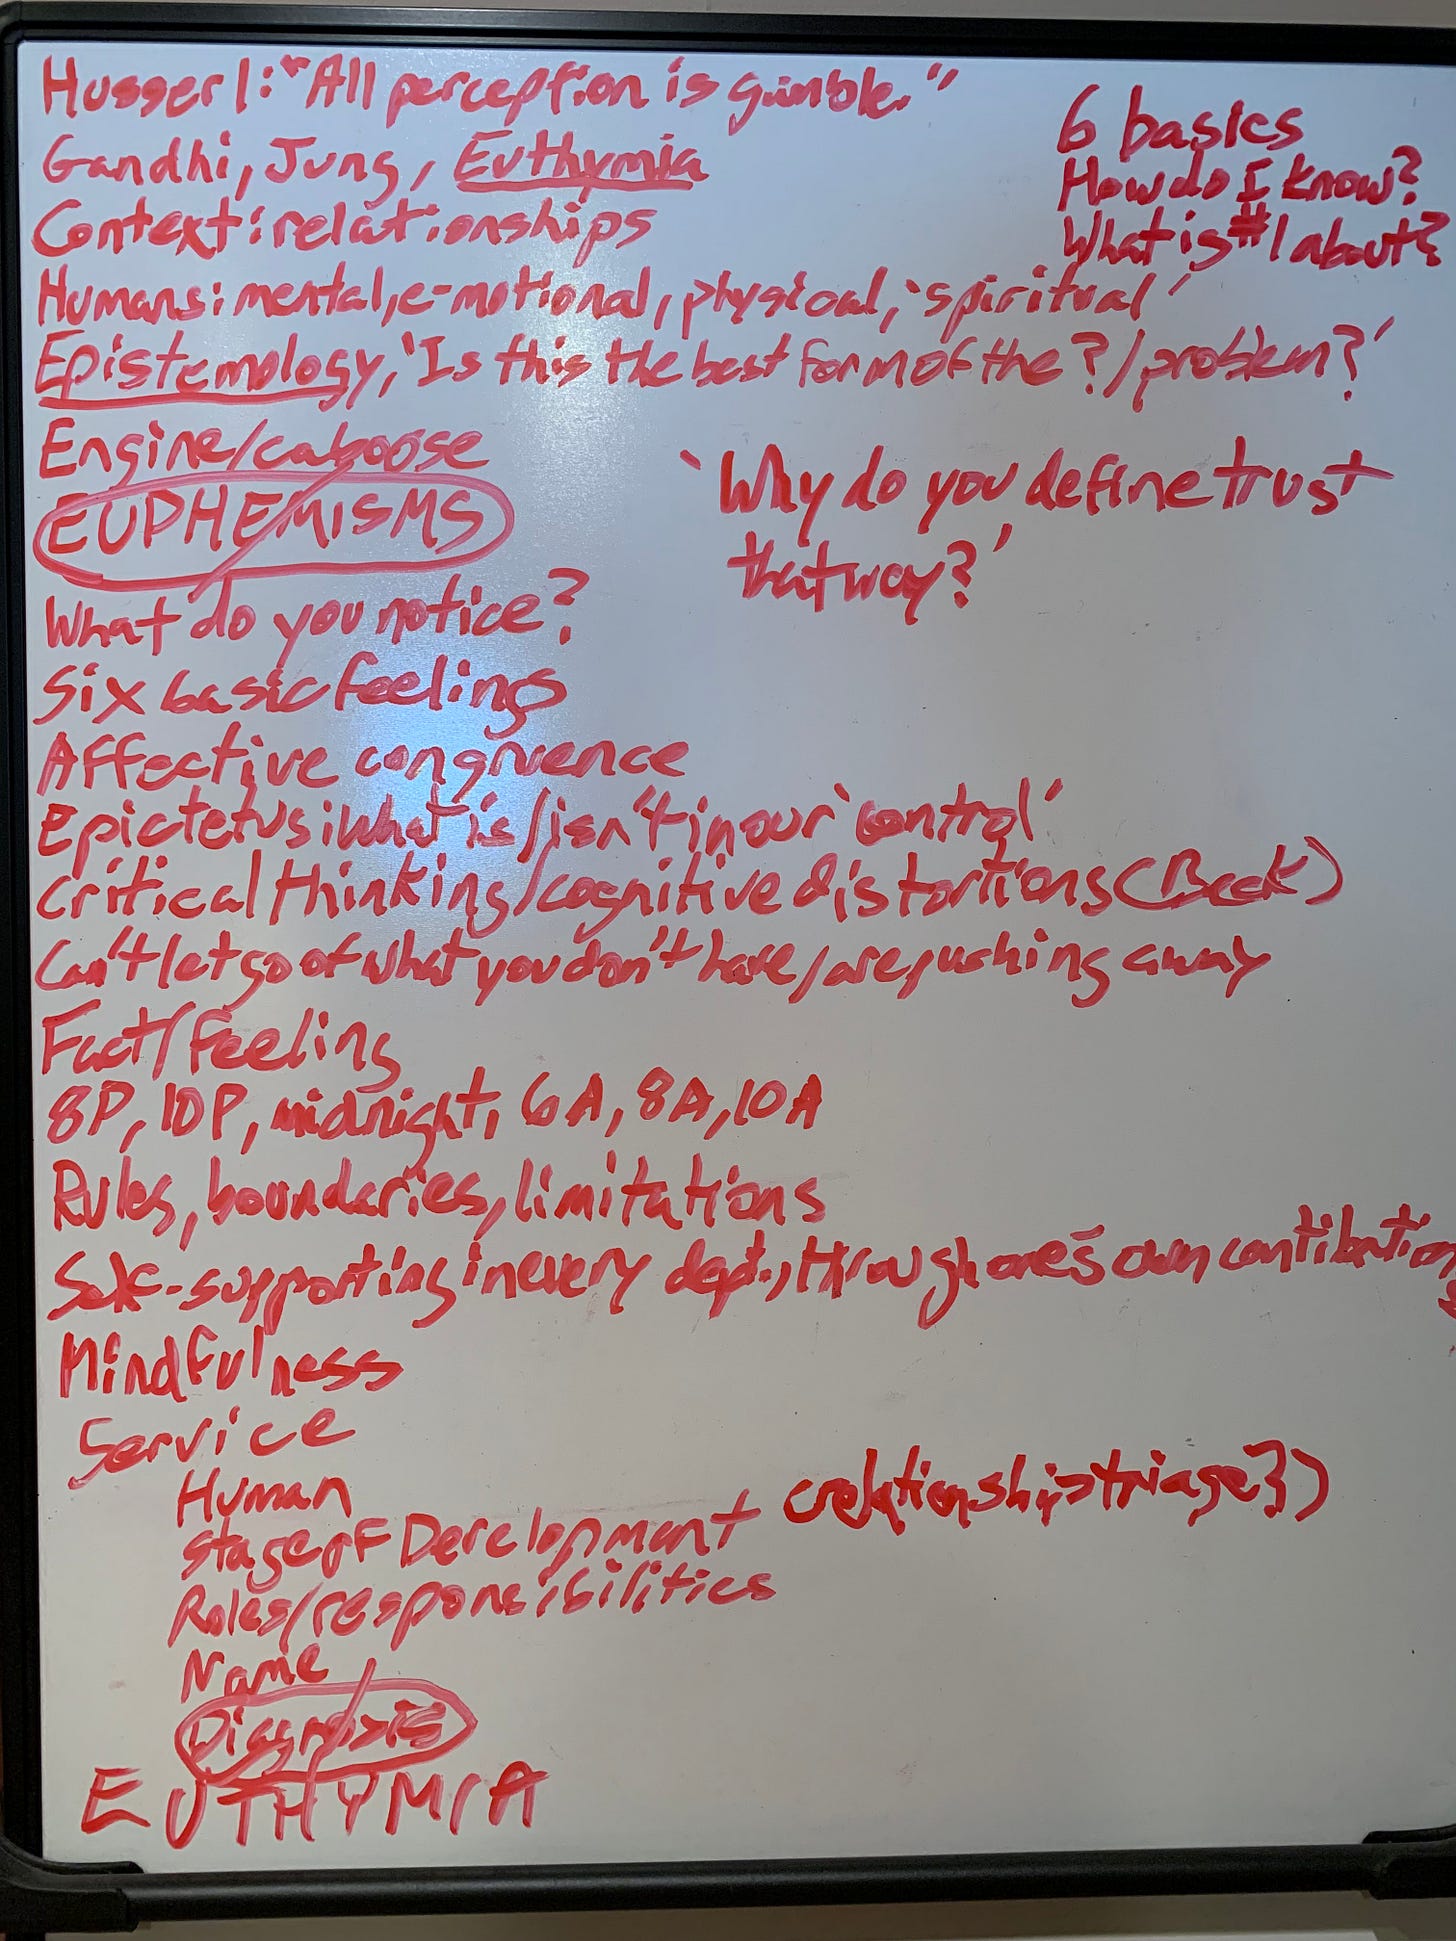 Husserl: "All perception is gamble."
6 basics
How do I know?
What is #1 about?
Gandhi, Jung, Euthymia
Context: relationships
Humans: mental, e-motional, physical, 'spiritual'
Epistemology, 'Is this the best form of the ?/problem?'
Engine/caboose
EUPHEMISMS
'Why do you define trust
that way?'
What do you notice?
Six basic feelings
Affective congruence
Epictetus: What is/isn't in our 'control'
Critical thinking/cognitive distortions (Beck)
Can't let go of what you don't have/are pushing away
Fact/feeling
8P, 10P, midnight, 6A, 8A, 10A
Rules, boundaries, limitations
Self-supporting in every dept., through one's own contributions
Mindfulness
Service
Human
Stage of Development (relationship triage?)
Roles/responsibilities
Name
Diagnosis
EUTHYMIA